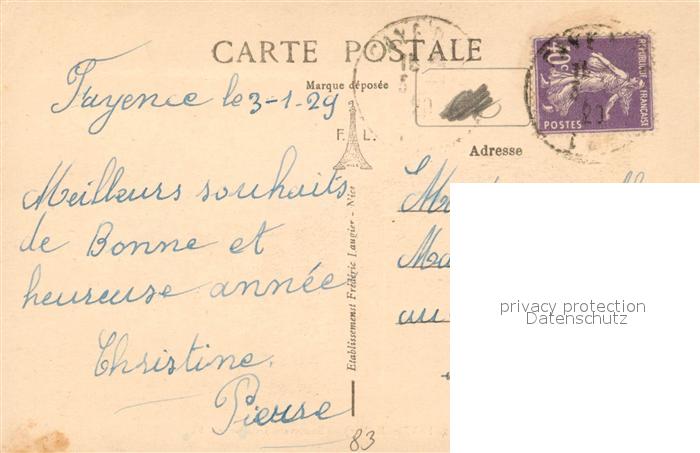 CARTE POSTALE
Marque déposée
F. L.
Adresse
Fayence le 3-1-29
Meilleurs souhaits
de Bonne et
heureuse année
Christine.
Pierre
Etablissements Frédéric Laugier - Nice
au
40c
REPUBLIQUE FRANÇAISE
POSTES
83
privacy protection
Datenschutz